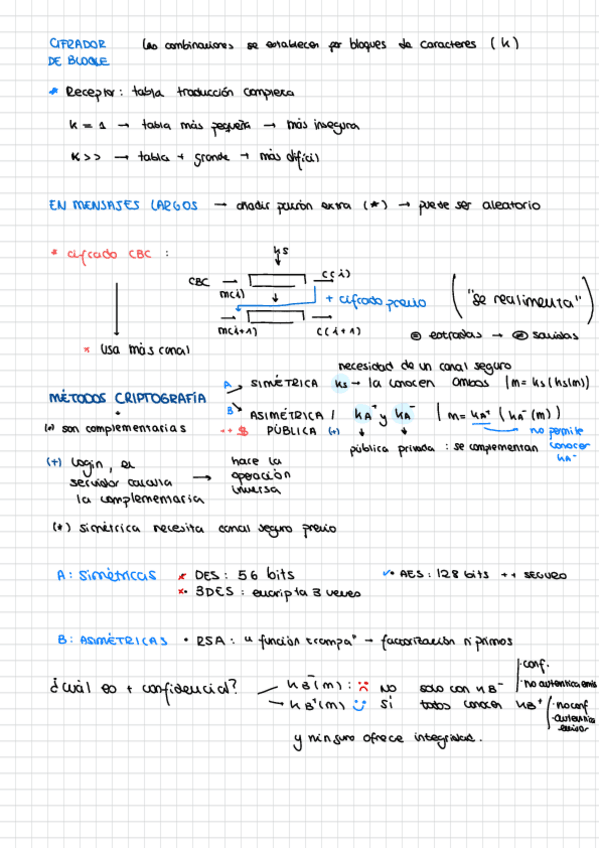 CIFRADOR DE BLOQUE las combinaciones se establecen por bloques de caracteres (k)
* Receptor: tabla traducción compleja
k = 1 → tabla más pequeña → más insegura
K >> → tabla + grande → más difícil
EN MENSAJES LARGOS → añadir patrón extra (*) → puede ser aleatorio
* cifrado CBC :
ks
CBC → c(i)
m(i)
+ cifrado previo
("se realimenta")
m(i+1) c(i+1)
≠ entradas → ≠ salidas
* usa más canal
necesidad de un canal seguro
MÉTODOS CRIPTOGRAFÍA
A SIMÉTRICA ks → la conocen ambos | m = ks(ks(m))
B ASIMÉTRICA / KA⁺ y KA⁻ | m = KA⁺(KA⁻(m))
(*) son complementarias ++ $ PÚBLICA (+) → no permite conocer KA⁻
pública privada : se complementan
(+) Login, el servidor calcula la complementaria → hace la operación inversa
(*) simétrica necesita canal seguro previo
A: Simétricas * DES: 56 bits
✓• AES: 128 bits ++ SEGURO
*• 3DES: encripta 3 veces
B: ASIMÉTRICAS • RSA: "función trampa" → factorización nº primos
¿cuál es + confidencial? → KB⁻(m) : ☹ NO solo con KB⁻ | · conf. · no autentica emis
→ KB⁺(m) ☺ Sí todos conocen KB⁺ | · no conf · autentica emisor
y ninguno ofrece integridad.